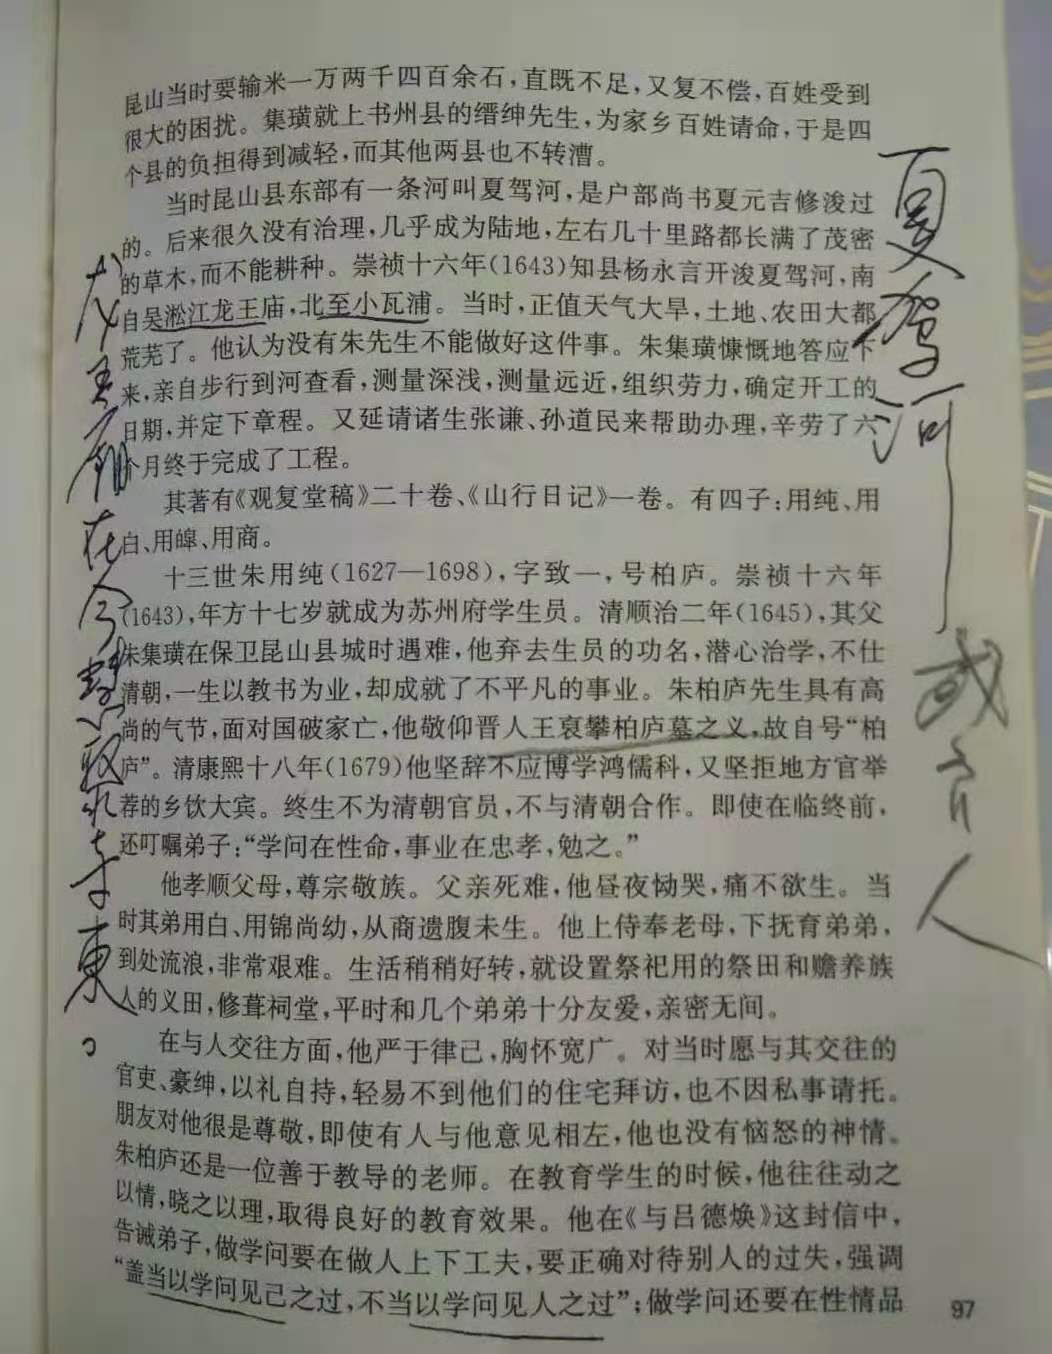 昆山当时要输米一万两千四百余石，直既不足，又复不偿，百姓受到
很大的困扰。集璜就上书州县的缙绅先生，为家乡百姓请命，于是四
个县的负担得到减轻，而其他两县也不转漕。
当时昆山县东部有一条河叫夏驾河，是户部尚书夏元吉修浚过
的。后来很久没有治理，几乎成为陆地，左右几十里路都长满了茂密
的草木，而不能耕种。崇祯十六年（1643）知县杨永言开浚夏驾河，南
自吴淞江龙王庙，北至小瓦浦。当时，正值天气大旱，土地、农田大都
荒芜了。他认为没有朱先生不能做好这件事。朱集璜慷慨地答应下
来，亲自步行到河查看，测量深浅，测量远近，组织劳力，确定开工的
日期，并定下章程。又延请诸生张谦、孙道民来帮助办理，辛劳了六
个月终于完成了工程。
其著有《观复堂稿》二十卷、《山行日记》一卷。有四子：用纯、用
白、用皞、用商。
十三世朱用纯（1627—1698），字致一，号柏庐。崇祯十六年
（1643），年方十七岁就成为苏州府学生员。清顺治二年（1645），其父
朱集璜在保卫昆山县城时遇难，他弃去生员的功名，潜心治学，不仕
清朝，一生以教书为业，却成就了不平凡的事业。朱柏庐先生具有高
尚的气节，面对国破家亡，他敬仰晋人王裒攀柏庐墓之义，故自号“柏
庐”。清康熙十八年（1679）他坚辞不应博学鸿儒科，又坚拒地方官举
荐的乡饮大宾。终生不为清朝官员，不与清朝合作。即使在临终前，
还叮嘱弟子：“学问在性命，事业在忠孝，勉之。”
他孝顺父母，尊宗敬族。父亲死难，他昼夜恸哭，痛不欲生。当
时其弟用白、用锦尚幼，从商遗腹未生。他上侍奉老母，下抚育弟弟，
到处流浪，非常艰难。生活稍稍好转，就设置祭祀用的祭田和赡养族
人的义田，修葺祠堂，平时和几个弟弟十分友爱，亲密无间。
在与人交往方面，他严于律己，胸怀宽广。对当时愿与其交往的
官吏、豪绅，以礼自持，轻易不到他们的住宅拜访，也不因私事请托。
朋友对他很是尊敬，即使有人与他意见相左，他也没有恼怒的神情。
朱柏庐还是一位善于教导的老师。在教育学生的时候，他往往动之
以情，晓之以理，取得良好的教育效果。他在《与吕德焕》这封信中，
告诫弟子，做学问要在做人上下工夫，要正确对待别人的过失，强调
“盖当以学问见己之过，不当以学问见人之过”；做学问还要在性情品
97
夏驾河
人
王廟在今
東。